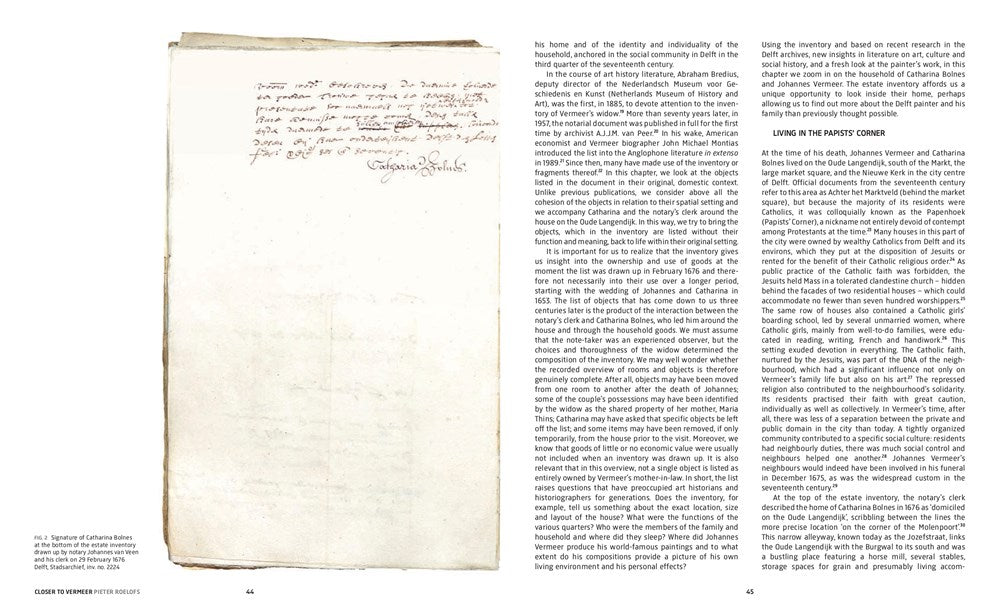 Catharina Bolnes.
FIG. 2 Signature of Catharina Bolnes
at the bottom of the estate inventory
drawn up by notary Johannes van Veen
and his clerk on 29 February 1676
Delft, Stadsarchief, inv. no. 2224
CLOSER TO VERMEER PIETER ROELOFS
44
his home and of the identity and individuality of the
household, anchored in the social community in Delft in the
third quarter of the seventeenth century.
In the course of art history literature, Abraham Bredius,
deputy director of the Nederlandsch Museum voor Ge-
schiedenis en Kunst (Netherlands Museum of History and
Art), was the first, in 1885, to devote attention to the inven-
tory of Vermeer's widow.¹⁹ More than seventy years later, in
1957, the notarial document was published in full for the first
time by archivist A.J.J.M. van Peer.²⁰ In his wake, American
economist and Vermeer biographer John Michael Montias
introduced the list into the Anglophone literature in extenso
in 1989.²¹ Since then, many have made use of the inventory or
fragments thereof.²² In this chapter, we look at the objects
listed in the document in their original, domestic context.
Unlike previous publications, we consider above all the
cohesion of the objects in relation to their spatial setting and
we accompany Catharina and the notary's clerk around the
house on the Oude Langendijk. In this way, we try to bring the
objects, which in the inventory are listed without their
function and meaning, back to life within their original setting.
It is important for us to realize that the inventory gives
us insight into the ownership and use of goods at the
moment the list was drawn up in February 1676 and there-
fore not necessarily into their use over a longer period,
starting with the wedding of Johannes and Catharina in
1653. The list of objects that has come down to us three
centuries later is the product of the interaction between the
notary's clerk and Catharina Bolnes, who led him around the
house and through the household goods. We must assume
that the note-taker was an experienced observer, but the
choices and thoroughness of the widow determined the
composition of the inventory. We may well wonder whether
the recorded overview of rooms and objects is therefore
genuinely complete. After all, objects may have been moved
from one room to another after the death of Johannes;
some of the couple's possessions may have been identified
by the widow as the shared property of her mother, Maria
Thins; Catharina may have asked that specific objects be left
off the list; and some items may have been removed, if only
temporarily, from the house prior to the visit. Moreover, we
know that goods of little or no economic value were usually
not included when an inventory was drawn up. It is also
relevant that in this overview, not a single object is listed as
entirely owned by Vermeer's mother-in-law. In short, the list
raises questions that have preoccupied art historians and
historiographers for generations. Does the inventory, for
example, tell us something about the exact location, size
and layout of the house? What were the functions of the
various quarters? Who were the members of the family and
household and where did they sleep? Where did Johannes
Vermeer produce his world-famous paintings and to what
extent do his compositions provide a picture of his own
living environment and his personal effects?
Using the inventory and based on recent research in the
Delft archives, new insights in literature on art, culture and
social history, and a fresh look at the painter's work, in this
chapter we zoom in on the household of Catharina Bolnes
and Johannes Vermeer. The estate inventory affords us a
unique opportunity to look inside their home, perhaps
allowing us to find out more about the Delft painter and his
family than previously thought possible.
LIVING IN THE PAPISTS' CORNER
At the time of his death, Johannes Vermeer and Catharina
Bolnes lived on the Oude Langendijk, south of the Markt, the
large market square, and the Nieuwe Kerk in the city centre
of Delft. Official documents from the seventeenth century
refer to this area as Achter het Marktveld (behind the market
square), but because the majority of its residents were
Catholics, it was colloquially known as the Papenhoek
(Papists' Corner), a nickname not entirely devoid of contempt
among Protestants at the time.²³ Many houses in this part of
the city were owned by wealthy Catholics from Delft and its
environs, which they put at the disposition of Jesuits or
rented for the benefit of their Catholic religious order.²⁴ As
public practice of the Catholic faith was forbidden, the
Jesuits held Mass in a tolerated clandestine church – hidden
behind the facades of two residential houses – which could
accommodate no fewer than seven hundred worshippers.²⁵
The same row of houses also contained a Catholic girls'
boarding school, led by several unmarried women, where
Catholic girls, mainly from well-to-do families, were edu-
cated in reading, writing, French and handiwork.²⁶ This
setting exuded devotion in everything. The Catholic faith,
nurtured by the Jesuits, was part of the DNA of the neigh-
bourhood, which had a significant influence not only on
Vermeer's family life but also on his art.²⁷ The repressed
religion also contributed to the neighbourhood's solidarity.
Its residents practised their faith with great caution,
individually as well as collectively. In Vermeer's time, after
all, there was less of a separation between the private and
public domain in the city than today. A tightly organized
community contributed to a specific social culture: residents
had neighbourly duties, there was much social control and
neighbours helped one another.²⁸ Johannes Vermeer's
neighbours would indeed have been involved in his funeral
in December 1675, as was the widespread custom in the
seventeenth century.²⁹
At the top of the estate inventory, the notary's clerk
described the home of Catharina Bolnes in 1676 as 'domiciled
on the Oude Langendijk', scribbling between the lines the
more precise location 'on the corner of the Molenpoort'.³⁰
This narrow alleyway, known today as the Jozefstraat, links
the Oude Langendijk with the Burgwal to its south and was
a bustling place featuring a horse mill, several stables,
storage spaces for grain and presumably living accom-
45